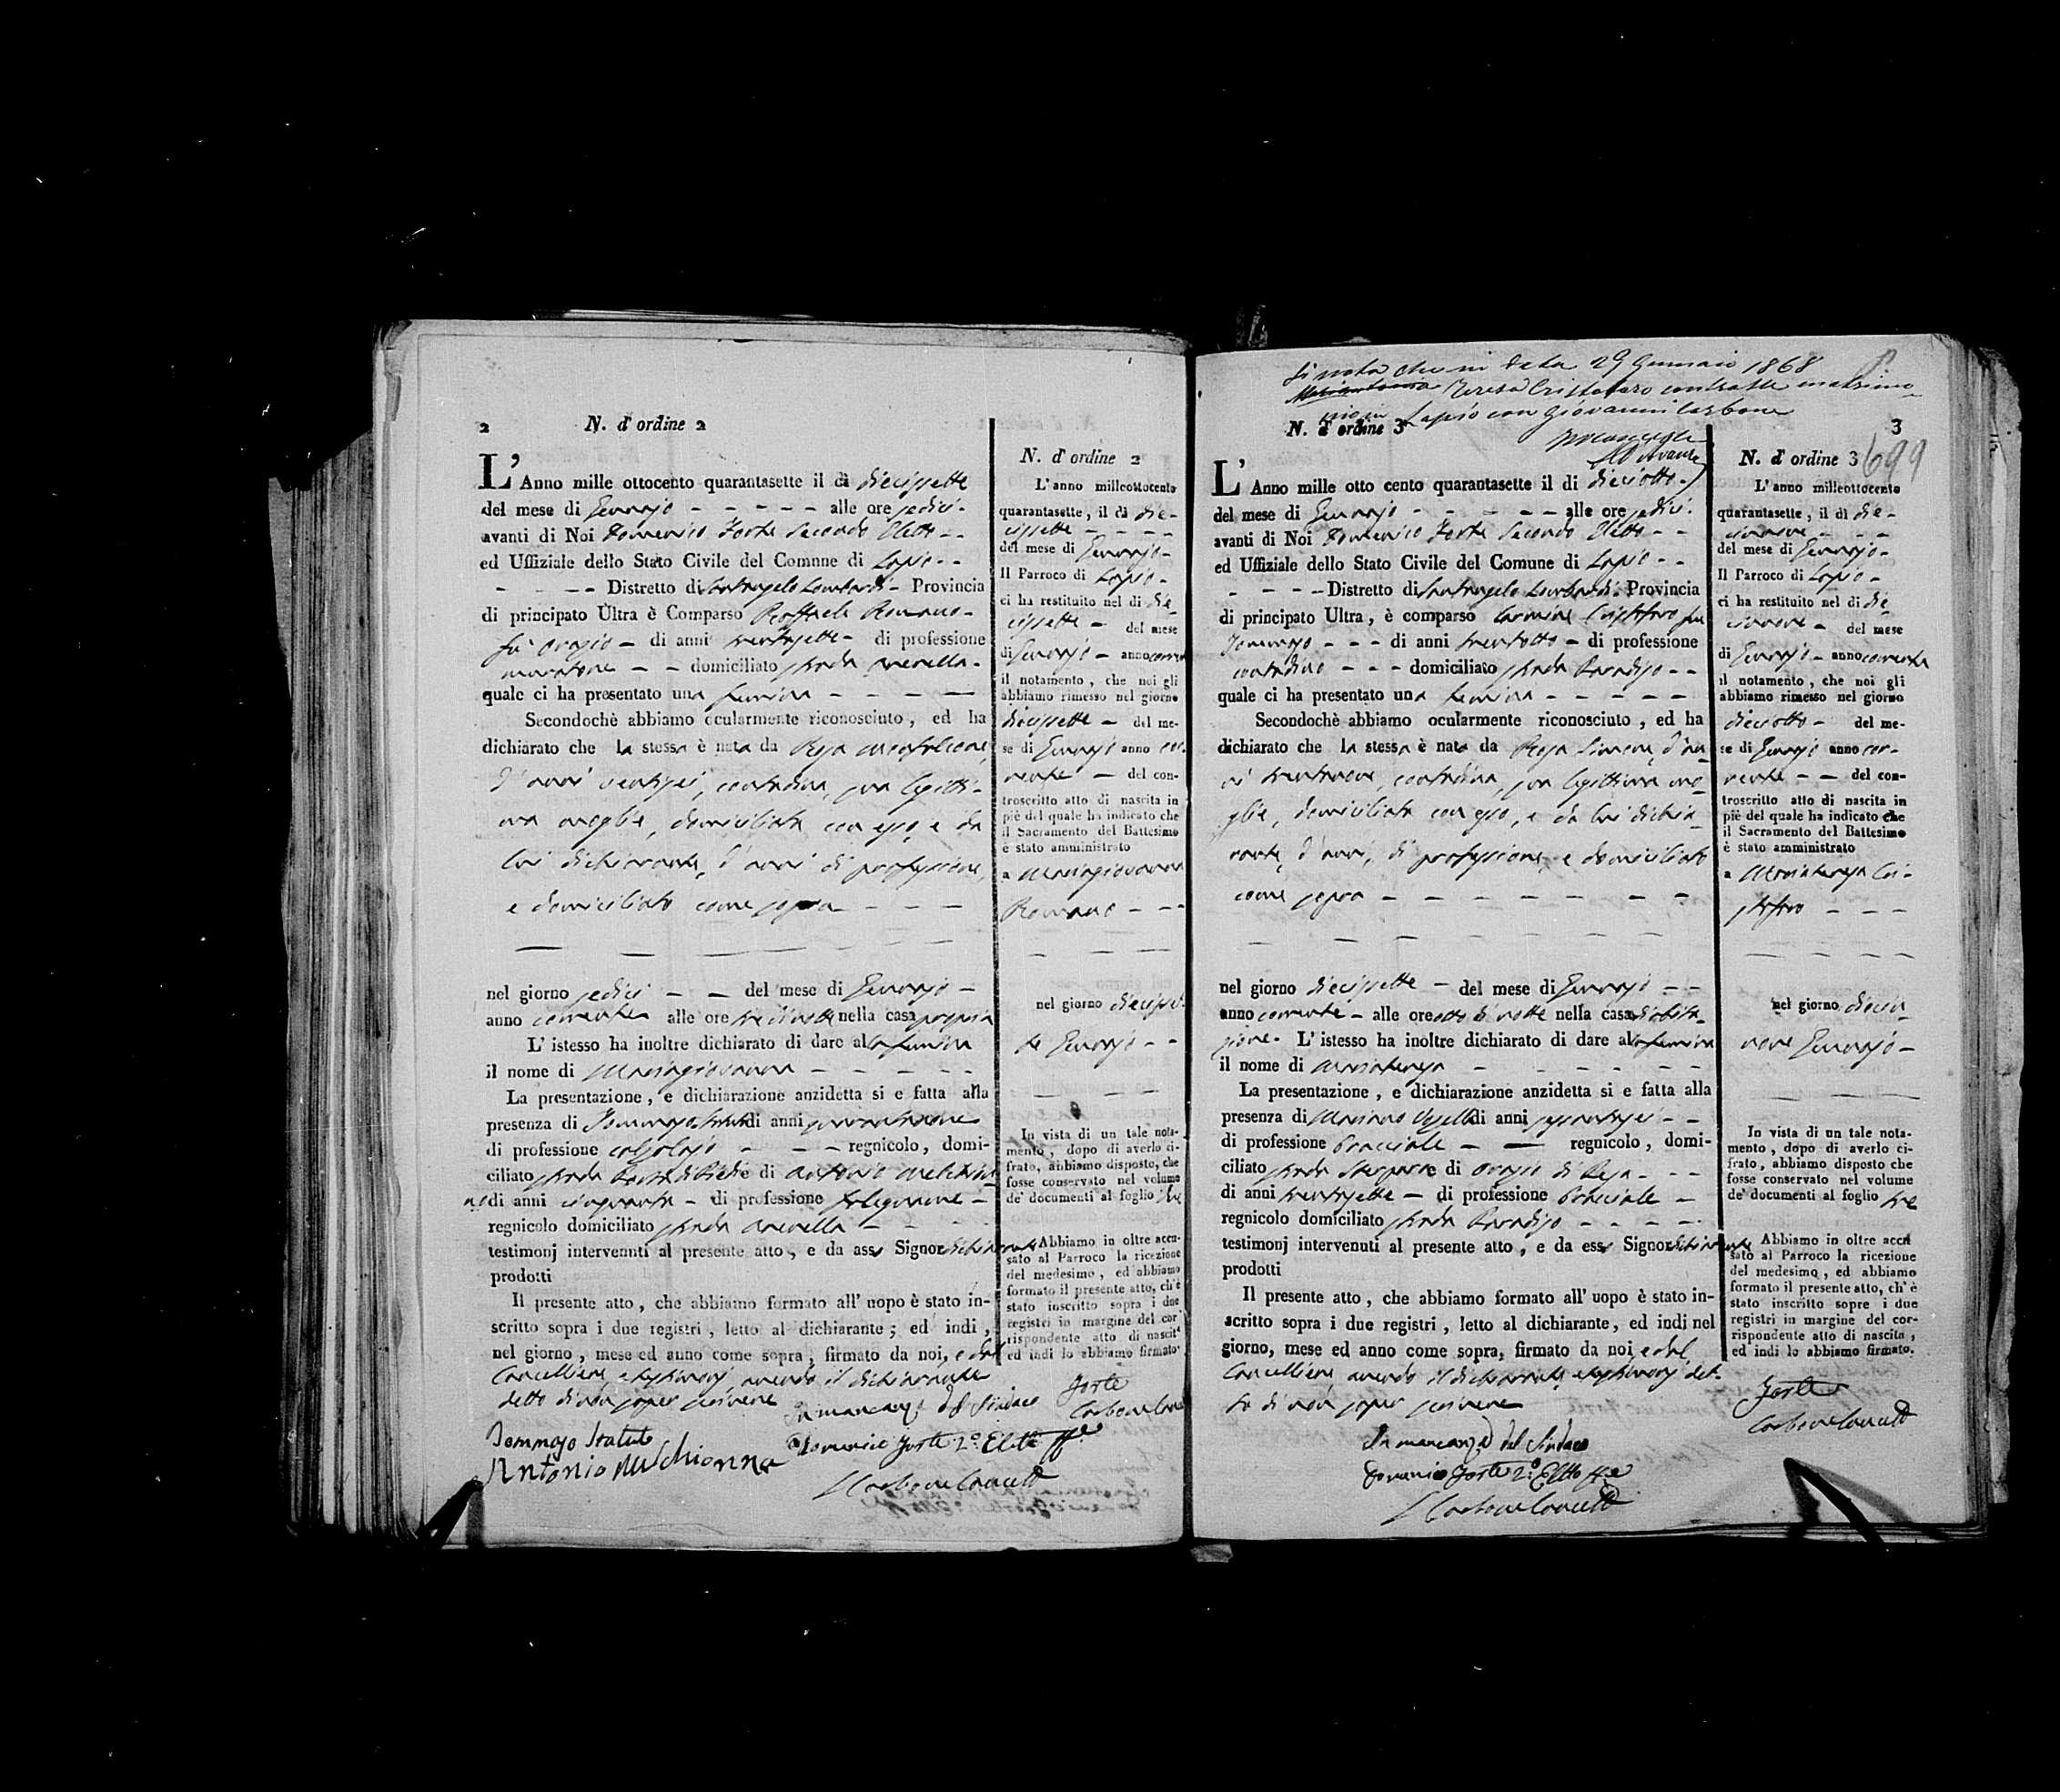 2
N. d' ordine 2
L' Anno mille ottocento quarantasette il dì diecissette
del mese di Gennajo - - - - - alle ore sedici -
avanti di Noi Domenico Forte Secondo Eletto - -
ed Uffiziale dello Stato Civile del Comune di Lapio - -
- - - - Distretto di Santangelo Lombardi - Provincia
di principato Ultra è Comparso Raffaele Romano -
fu Orazio - di anni trentasette - di professione
muratore - - domiciliato strada
quale ci ha presentato una femina - - - - -
Secondochè abbiamo ocularmente riconosciuto, ed ha
dichiarato che la stessa è nata da Rosa
d'anni ventisei, contadina, sua legitti-
ma moglie, domiciliata con esso, e da
lui dichiarante, d'anni di professione,
e domiciliato come sopra - - -
nel giorno sedici - - del mese di Gennajo -
anno corrente alle ore tre di notte nella casa propria
L' istesso ha inoltre dichiarato di dare alla femina
il nome di Mariagiovanna - - - - -
La presentazione, e dichiarazione anzidetta si e fatta alla
presenza di Tommaso di anni
di professione calzolajo - - - regnicolo, domi-
ciliato strada e di Antonio Melchion
na di anni cinquanta - di professione falegname -
regnicolo domiciliato strada
testimonj intervenuti al presente atto, e da ass Signor dichiarante
prodotti
Il presente atto, che abbiamo formato all' uopo è stato in-
scritto sopra i due registri, letto al dichiarante; ed indi,
nel giorno, mese ed anno come sopra, firmato da noi, e dal
Cancelliere, e testimonj avendo il dichiarante
detto di non saper scrivere
Tommaso
Antonio Melchionna
In mancanza del Sindaco
Domenico Forte 2º Eletto
Carbone Cancell
N. d' ordine 2
L' anno milleottocento
quarantasette, il dì die-
cissette - - - -
del mese di Gennajo -
Il Parroco di Lapio -
ci ha restituito nel dì die-
cissette - del mese
di Gennajo - anno corrente
il notamento, che noi gli
abbiamo rimesso nel giorno
diecissette - del me-
se di Gennajo anno cor-
rente - del con-
troscritto atto di nascita in
piè del quale ha indicato che
il Sacramento del Battesimo
è stato amministrato
a Mariagiovanna
Romano - - -
nel giorno diecisset-
te Gennajo - -
In vista di un tale nota-
mento, dopo di averlo ci-
frato, abbiamo disposto, che
fosse conservato nel volume
de' documenti al foglio due
Abbiamo in oltre accu-
sato al Parroco la ricezione
del medesimo, ed abbiamo
formato il presente atto, ch'è
stato inscritto sopra i due
registri in margine del cor
rispondente atto di nascit
ed indi lo abbiamo firmato
Forte
Carbone Canc
Si nota che in data 29 Gennaio 1868
Teresa Cristofaro contrasse matrimo-
nio in Lapio con Giovanni Carbone
N. d' ordine 3
3
L' Anno mille otto cento quarantasette il di dieciotto -
del mese di Gennajo - - - - - alle ore sedici -
avanti di Noi Domenico Forte Secondo Eletto - -
ed Uffiziale dello Stato Civile del Comune di Lapio - -
- - - - Distretto di Santangelo Lombardi - Provincia
di principato Ultra, è comparso Carmine Cristofaro fu
Tommaso - - - di anni trentotto - di professione
contadino - - - domiciliato strada Paradiso - -
quale ci ha presentato una femina - - - - -
Secondochè abbiamo ocularmente riconosciuto, ed ha
dichiarato che la stessa è nata da Rosa Simone, d'an-
ni trentanove, contadina, sua legittima mo-
glie, domiciliata con esso, e da lui dichia-
rante, d'anni, di professione, e domiciliato
come sopra - - - - - - -
nel giorno diecissette - del mese di Gennajo - -
anno corrente - alle ore otto di notte nella casa di abita-
zione - L' istesso ha inoltre dichiarato di dare alla femina
il nome di Mariateresa - - - - -
La presentazione, e dichiarazione anzidetta si e fatta alla
presenza di Mariano di anni sessantasei - -
di professione bracciale - - regnicolo, domi-
ciliato strada e di Orazio di Rosa - - -
di anni trentasette - di professione bracciale -
regnicolo domiciliato strada Paradiso - - - -
testimonj intervenuti al presente atto, e da ess Signor dichiarante
prodotti
Il presente atto, che abbiamo formato all' uopo è stato in-
scritto sopra i due registri, letto al dichiarante, ed indi nel
giorno, mese ed anno come sopra, firmato da noi, e dal
Cancelliere, avendo il dichiarante, e testimonj det-
to di non saper scrivere
In mancanza del Sindaco
Domenico Forte 2º Eletto
Carbone Cancell
N. d' ordine 3
699
L' anno milleottocento
quarantasette, il dì die-
cinove - - -
del mese di Gennajo -
Il Parroco di Lapio -
ci ha restituito nel dì die
cinove - del mese
di Gennajo - anno corrente
il notamento, che noi gli
abbiamo rimesso nel giorno
dieciotto - del me-
se di Gennajo anno cor-
rente - - del con-
troscritto atto di nascita in
piè del quale ha indicato che
il Sacramento del Battesimo
è stato amministrato
a Mariateresa Cri-
stofaro - - -
nel giorno dician-
nove Gennajo -
In vista di un tale nota-
mento, dopo di averlo ci-
frato, abbiamo disposto che
fosse conservato nel volume
de' documenti al foglio tre
Abbiamo in oltre accu
sato al Parroco la ricezione
del medesimo, ed abbiamo
formato il presente atto, ch'è
stato inscritto sopre i due
registri in margine del cor-
rispondente atto di nascita,
ed indi lo abbiamo firmato.
Forte
Carbone Cancell